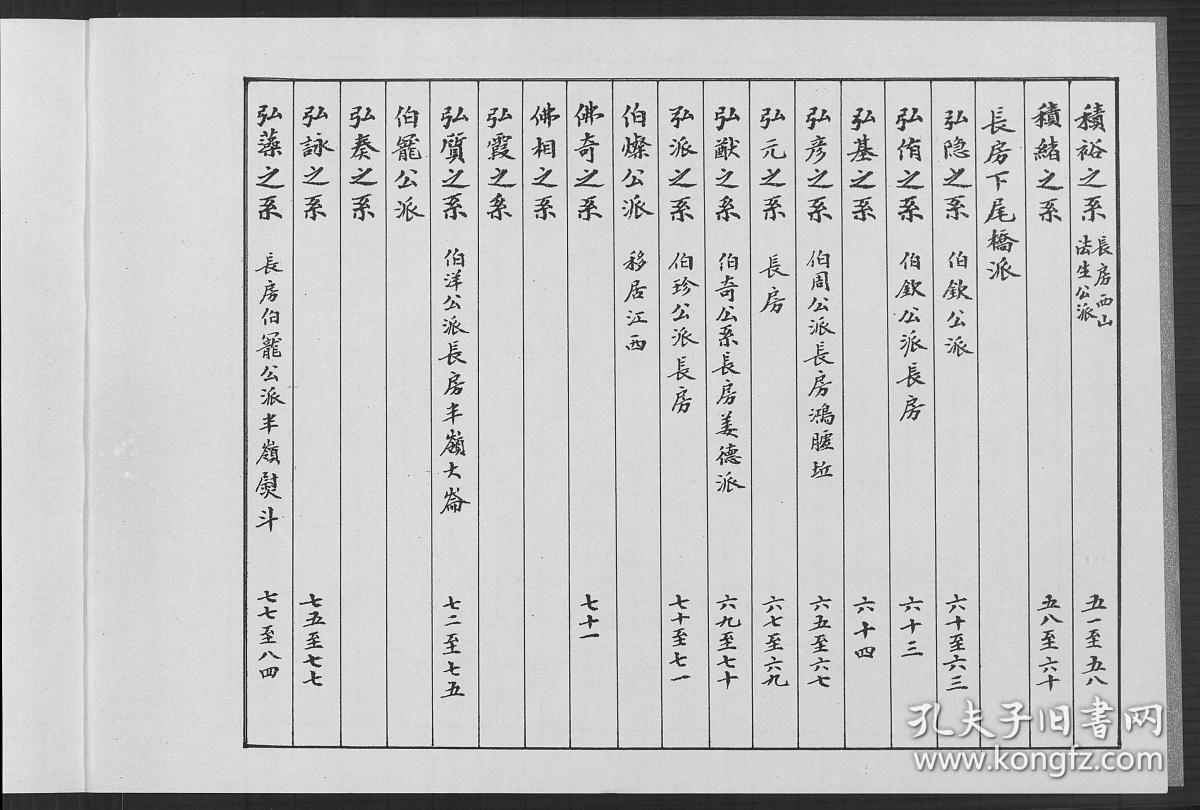 積裕之系 長房西山法生公派 五一至五八
積緒之系 五八至六十
長房下尾橋派
弘隐之系 伯欽公派 六十至六三
弘侑之系 伯欽公派長房 六十三
弘基之系 六十四
弘彦之系 伯周公派長房鴻腫坵 六五至六七
弘元之系 長房 六七至六九
弘猷之系 伯奇公系長房姜德派 六九至七十
弘派之系 伯珍公派長房 七十至七一
伯燦公派 移居江西
佛奇之系 七十一
佛相之系
弘霞之系
弘質之系 伯洋公派長房半嶺大崙 七二至七五
伯罷公派
弘奏之系
弘詠之系 七五至七七
弘藻之系 長房伯罷公派半嶺熨斗 七七至八四
孔夫子旧書网
www.kongfz.com